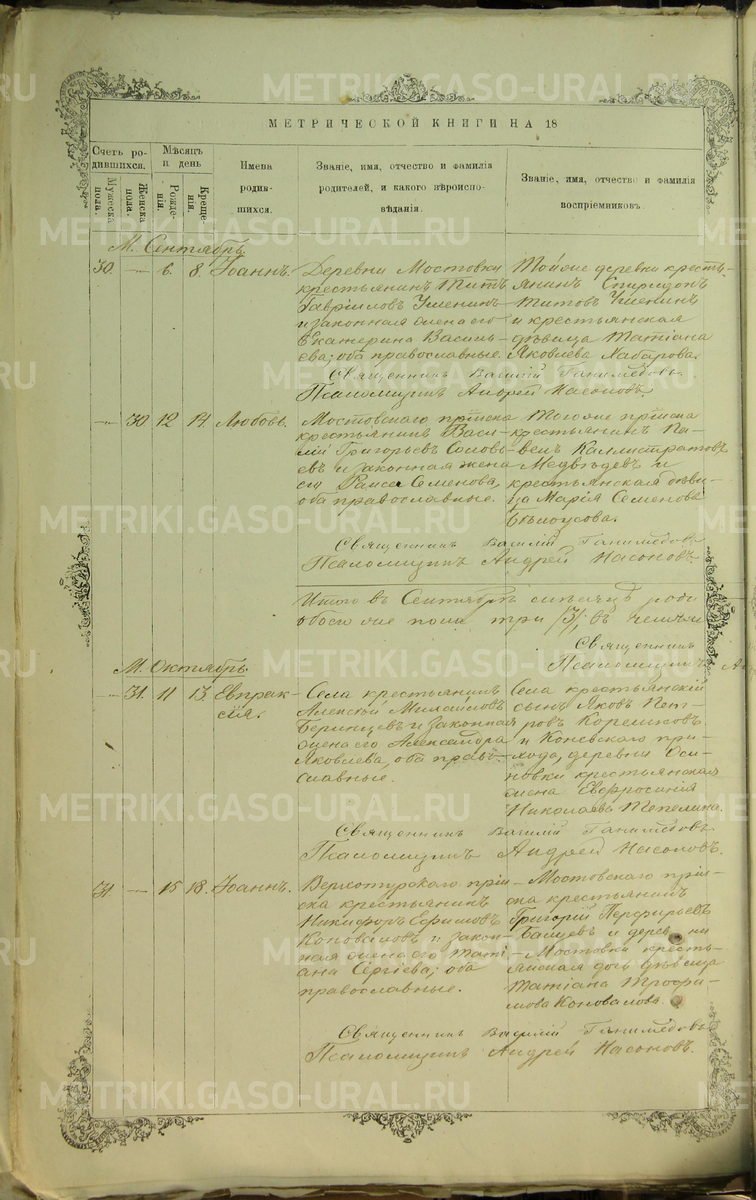 МЕТРИЧЕСКОЙ КНИГИ НА 18
Счетъ ро-
дившихся.
Мужеска пола.
Женска пола.
Мѣсяцъ
и день
Рожде-
нія.
Креще-
нія.
Имена
родив-
шихся.
Званіе, имя, отчество и фамилія
родителей, и какого вѣроиспо-
вѣданія.
Званіе, имя, отчество и фамилія
воспріемниковъ.
М. Сентябрь
30. — 6. 8. Іоаннъ.
Деревни Мостовки
крестьянинъ Титъ
Гавріиловъ Уменинъ
и законная жена его
Екатерина Василь-
ева; оба православные.
Тойже деревни кресть-
янинъ Спиридонъ
Титовъ Уменинъ
и крестьянская
дѣвица Татіана
Яковлева Хабарова.
Священникъ Василій Ганимедовъ
Псаломщикъ Андрей Насоновъ.
— 30 12 14. Любовь.
Мостовскаго пріиска
крестьянинъ Васи-
лій Григорьевъ Соловь-
евъ и законная жена
его Раиса Семенова,
оба православные.
Тогоже пріиска
крестьянинъ Па-
велъ Каллистратовъ
Медвѣдевъ и
крестьянская дѣви-
ца Марія Семенова
Бѣлоусова.
Священникъ Василій Ганимедовъ
Псаломщикъ Андрей Насоновъ.
Итого въ Сентябрѣ мѣсяцѣ роди
обоего пола три /3/ въ
Священникъ
Псаломщикъ
М. Октябрь.
— 31. 11 13. Евпрак-
сія.
Села крестьянинъ
Алексѣй Михаиловъ
Беринцевъ и законная
жена его Александра
Яковлева, оба право-
славные.
Села крестьянскій
сынъ Яковъ Пет-
ровъ Корелиновъ.
и Коневскаго при-
хода, деревни Оси-
новки крестьянская
жена Евфросинія
Николаева Тепелина.
Священникъ Василій Ганимедовъ
Псаломщикъ Андрей Насоновъ.
31. — 15 18. Іоаннъ.
Верхотурскаго прiи-
ска крестьянинъ
Никифоръ Ефимовъ
Коноваловъ и закон-
ная жена его Тати-
ана Сергіева; оба
православные.
Мостовскаго прiи-
ска крестьянинъ
Григорій Перфирьевъ
и дерев ни
Мостовки кресть-
янская дочь дѣвица
Татіана Трофи-
мова Коновалова.
Священникъ Василій Ганимедовъ
Псаломщикъ Андрей Насоновъ.
METRIKI.GASO-URAL.RU